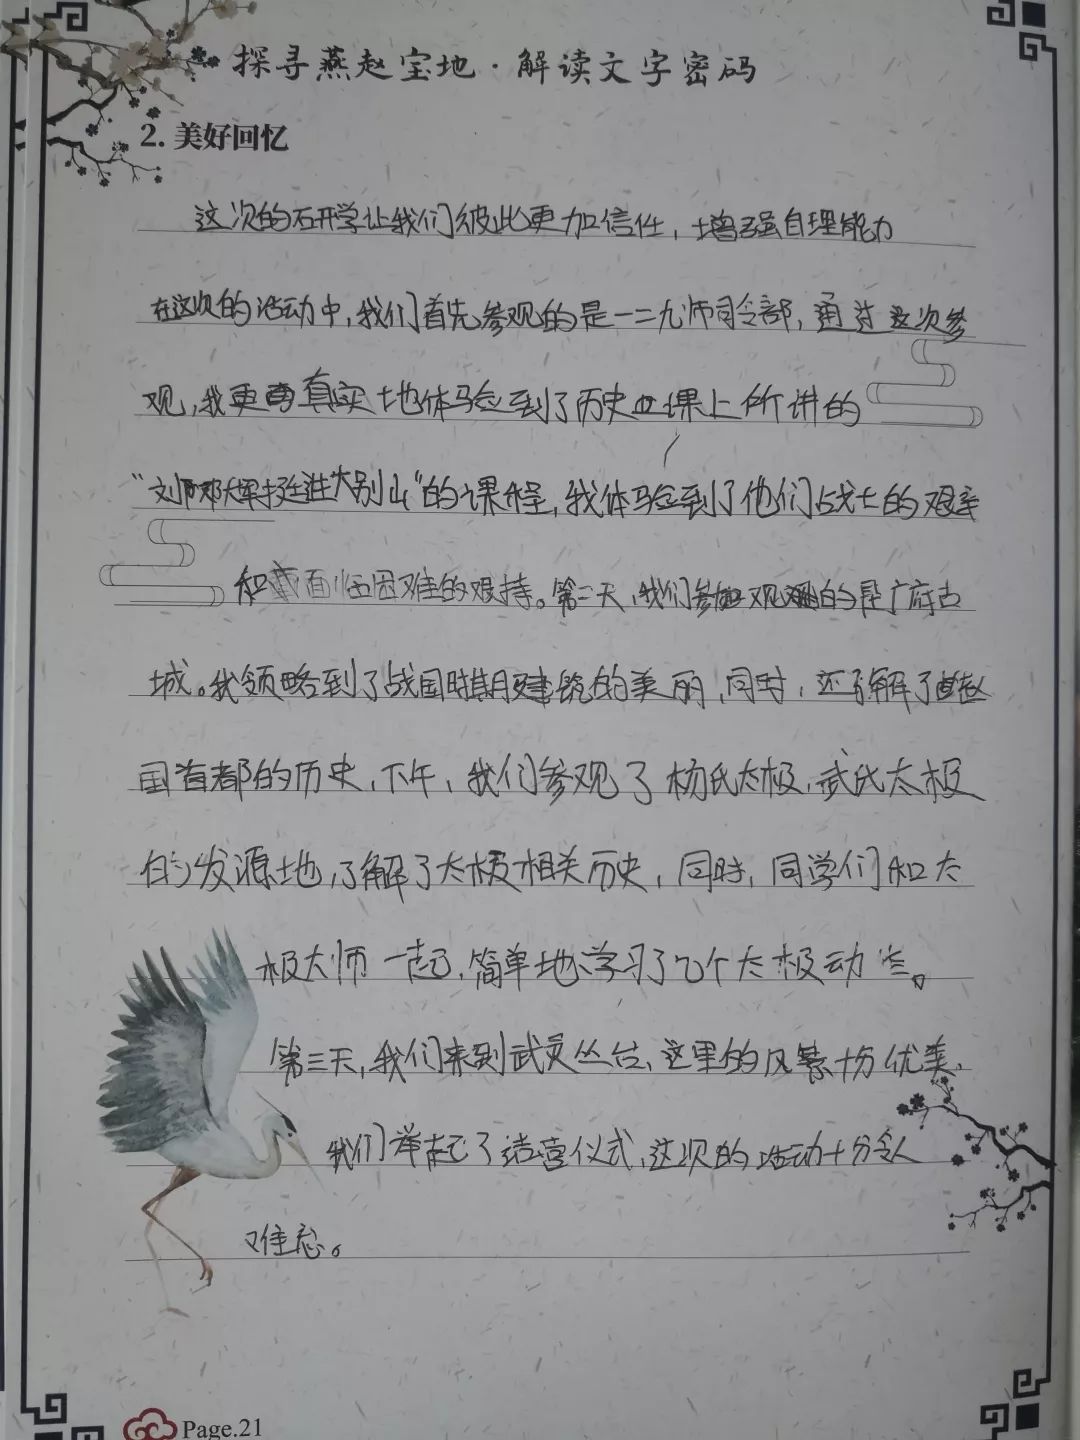 探寻燕赵宝地·解读文字密码
2. 美好回忆
这次的研学让我们彼此更加信任，增强自理能力
在这次的活动中，我们首先参观的是一二九师司令部，通过这次参
观，我更真实地体验到了历史课上所讲的
“刘邓大军挺进大别山”的课程，我体验到了他们战士的艰辛
和面临困难的艰持。第二天，我们参观的是广府古
城。我领略到了战国时期建筑的美丽，同时，还了解了赵
国首都的历史，下午，我们参观了杨氏太极，武氏太极
的发源地，了解了太极相关历史，同时，同学们和太
极大师一起，简单地学习了几个太极动作。
第三天，我们来到武灵丛台，这里的风景十份优美，
我们举起了结营仪式，这次的活动十分令人
难忘。
Page.21